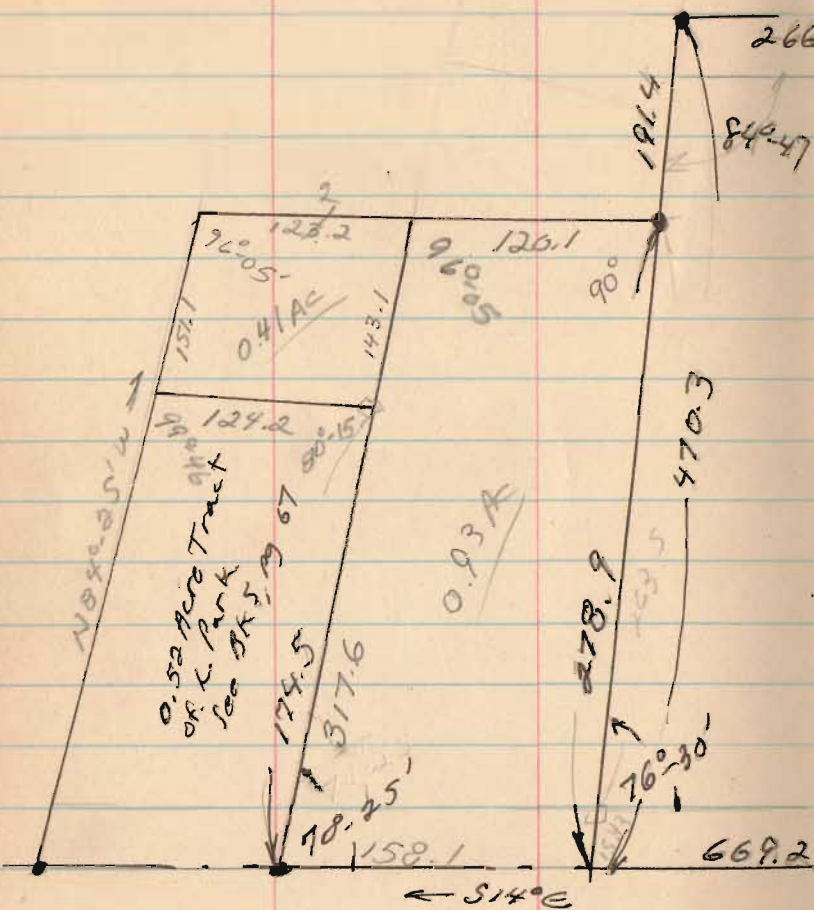 266
191.4
84°-47
2
123.2
120.1
96°-05-
96°05
90°
151.1
0.41 Ac
143.1
470.3
124.2
99°46
80°-15
N84°-25'W
0.52 Acre Tract
of L. Park
See BK 5, pg 67
0.93 Ac
278.9
263.5
174.5
317.6
76°-30-
78-25'
158.1
669.2
← S14°E